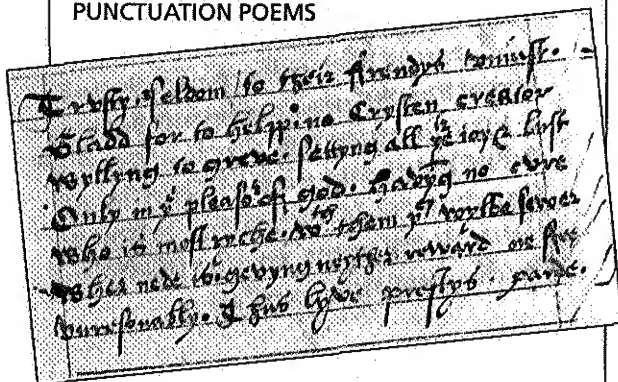 PUNCTUATION POEMS
Trvsty. seldom to their ffrendys vniust.
Gladd for to helpp. no Crysten creator
Wyllyng to greve. settyng all yeir ioy & lust
Only in ye pleasor of god. havyng no cvre
Who is most ryche. wth them yei wylbe sewer
Wher nede is. gevyng neyther reward ne ffee
Vnresonably. Thus lyve prestys. parde.